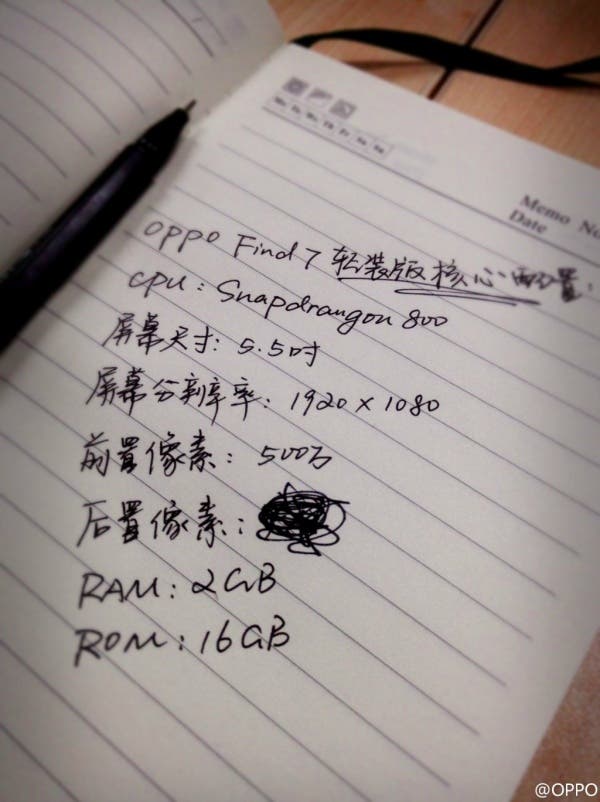 Mo Tu We Th Fr Sa Su
Memo No.
Date
OPPO Find 7 轻装版核心配置：
CPU：Snapdrangon 800
屏幕尺寸：5.5吋
屏幕分辨率：1920×1080
前置像素：500万
后置像素：
RAM：2GB
ROM：16GB
@OPPO